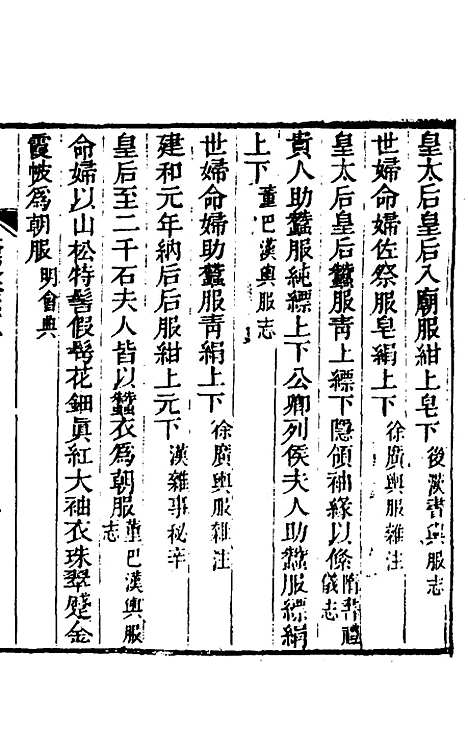 皇太后皇后入廟服紺上皂下後漢書輿服志
世婦命婦佐祭服皂絹上下徐廣輿服雜注
皇太后皇后蠶服靑上縹下隱領袖緣以絛隋書禮儀志
貴人助蠶服純縹上下公卿列侯夫人助蠶服縹絹
上下董巴漢輿服志
世婦命婦助蠶服靑絹上下徐廣輿服雜注
建和元年納后后服紺上元下漢雜事秘辛
皇后至二千石夫人皆以蠶衣爲朝服董巴漢輿服志
命婦以山松特髻假鬓花鈿眞紅大袖衣珠翠蹙金
霞帔爲朝服明會典